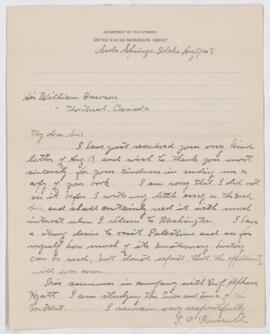 DEPARTMENT OF THE INTERIOR
UNITED STATES GEOLOGICAL SURVEY
Soda Springs, Idaho Aug
Sir William Dawson
Montreal, Canada
My dear Sir:
I have just received your very kind
letter of Aug. 19, and wish to thank you most
sincerely for your kindness in sending me a
copy of your book. I am sorry that I did not
see it before I wrote my little
but and shall certainly read it with much
interest when I return to Washington. I have
a strong desire to visit Palestine and see for
myself how much of its history
can be read, but almost expect that the opportunity
will ever come.
This summer in company with Prof. Alpheus
Hyatt I am studying the Trias and Jura of the
Far West. I remain very respectfully